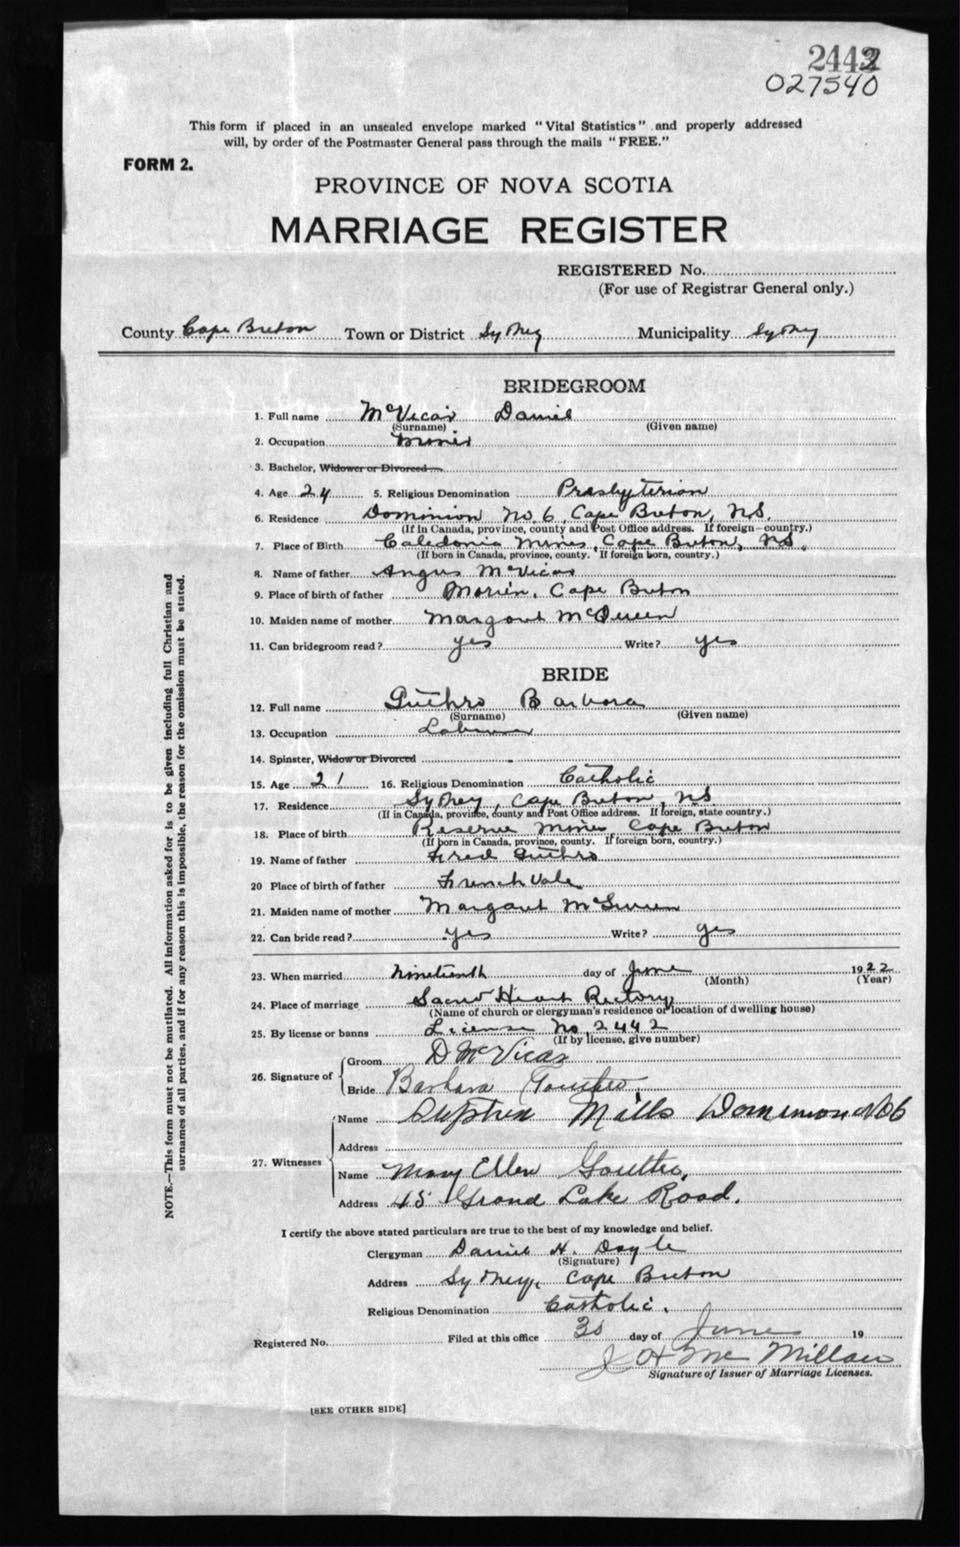 2442
027540
This form if placed in an unsealed envelope marked "Vital Statistics" and properly addressed
will, by order of the Postmaster General pass through the mails "FREE."
FORM 2.
PROVINCE OF NOVA SCOTIA
MARRIAGE REGISTER
REGISTERED No.
(For use of Registrar General only.)
County Cape Breton Town or District Sydney Municipality Sydney
BRIDEGROOM
1. Full name McVicar Daniel
(Surname) (Given name)
2. Occupation Miner
3. Bachelor, Widower or Divorced
4. Age 24 5. Religious Denomination Presbyterian
6. Residence Dominion No 6, Cape Breton, N.S.
(If in Canada, province, county and Post Office address. If foreign—country.)
7. Place of Birth Caledonia Mines, Cape Breton, N.S.
(If born in Canada, province, county. If foreign born, country.)
8. Name of father Angus McVicar
9. Place of birth of father Morien, Cape Breton
10. Maiden name of mother Margaret McQueen
11. Can bridegroom read? yes Write? yes
BRIDE
12. Full name Guthro Barbara
(Surname) (Given name)
13. Occupation
14. Spinster, Widow or Divorced
15. Age 21 16. Religious Denomination Catholic
17. Residence Sydney, Cape Breton, N.S
(If in Canada, province, county and Post Office address. If foreign, state country.)
18. Place of birth Reserve Mines Cape Breton
(If born in Canada, province, county. If foreign born, country.)
19. Name of father Fred Guthro
20 Place of birth of father French Vale
21. Maiden name of mother Margaret
22. Can bride read? yes Write? yes
23. When married nineteenth day of June 1922
(Month) (Year)
24. Place of marriage Sacred Heart Rectory
(Name of church or clergyman's residence or location of dwelling house)
25. By license or banns License No 2442
(If by license, give number)
26. Signature of Groom D McVicar
Bride Barbara
27. Witnesses Name Stephen Mills Dominion No 6
Address
Name Mary Ellen Gouthro,
Address 45 Grand Lake Road.
I certify the above stated particulars are true to the best of my knowledge and belief.
Clergyman Daniel H. Doyle
(Signature)
Address Sydney, Cape Breton
Religious Denomination Catholic.
Registered No. Filed at this office 30 day of June 19
J H McMillan
Signature of Issuer of Marriage Licenses.
[SEE OTHER SIDE]
NOTE.—This form must not be mutilated. All information asked for is to be given including full Christian and
surnames of all parties, and if for any reason this is impossible, the reason for the omission must be stated.